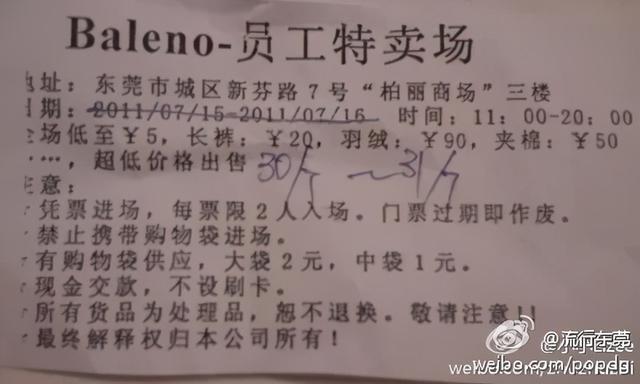 Baleno-员工特卖场
地址：东莞市城区新芬路7号“柏丽商场”三楼
日期：2011/07/15-2011/07/16 时间：11：00-20：00
全场低至￥5，长裤：￥20，羽绒：￥90，夹棉：￥50
……，超低价格出售 30/7 ~31/7
注意：
凭票进场，每票限2人入场。门票过期即作废。
禁止携带购物袋进场。
有购物袋供应，大袋2元，中袋1元。
现金交款，不设刷卡。
所有货品为处理品，恕不退换。敬请注意！！
最终解释权归本公司所有！
@流行东莞
weibo.com/popdg